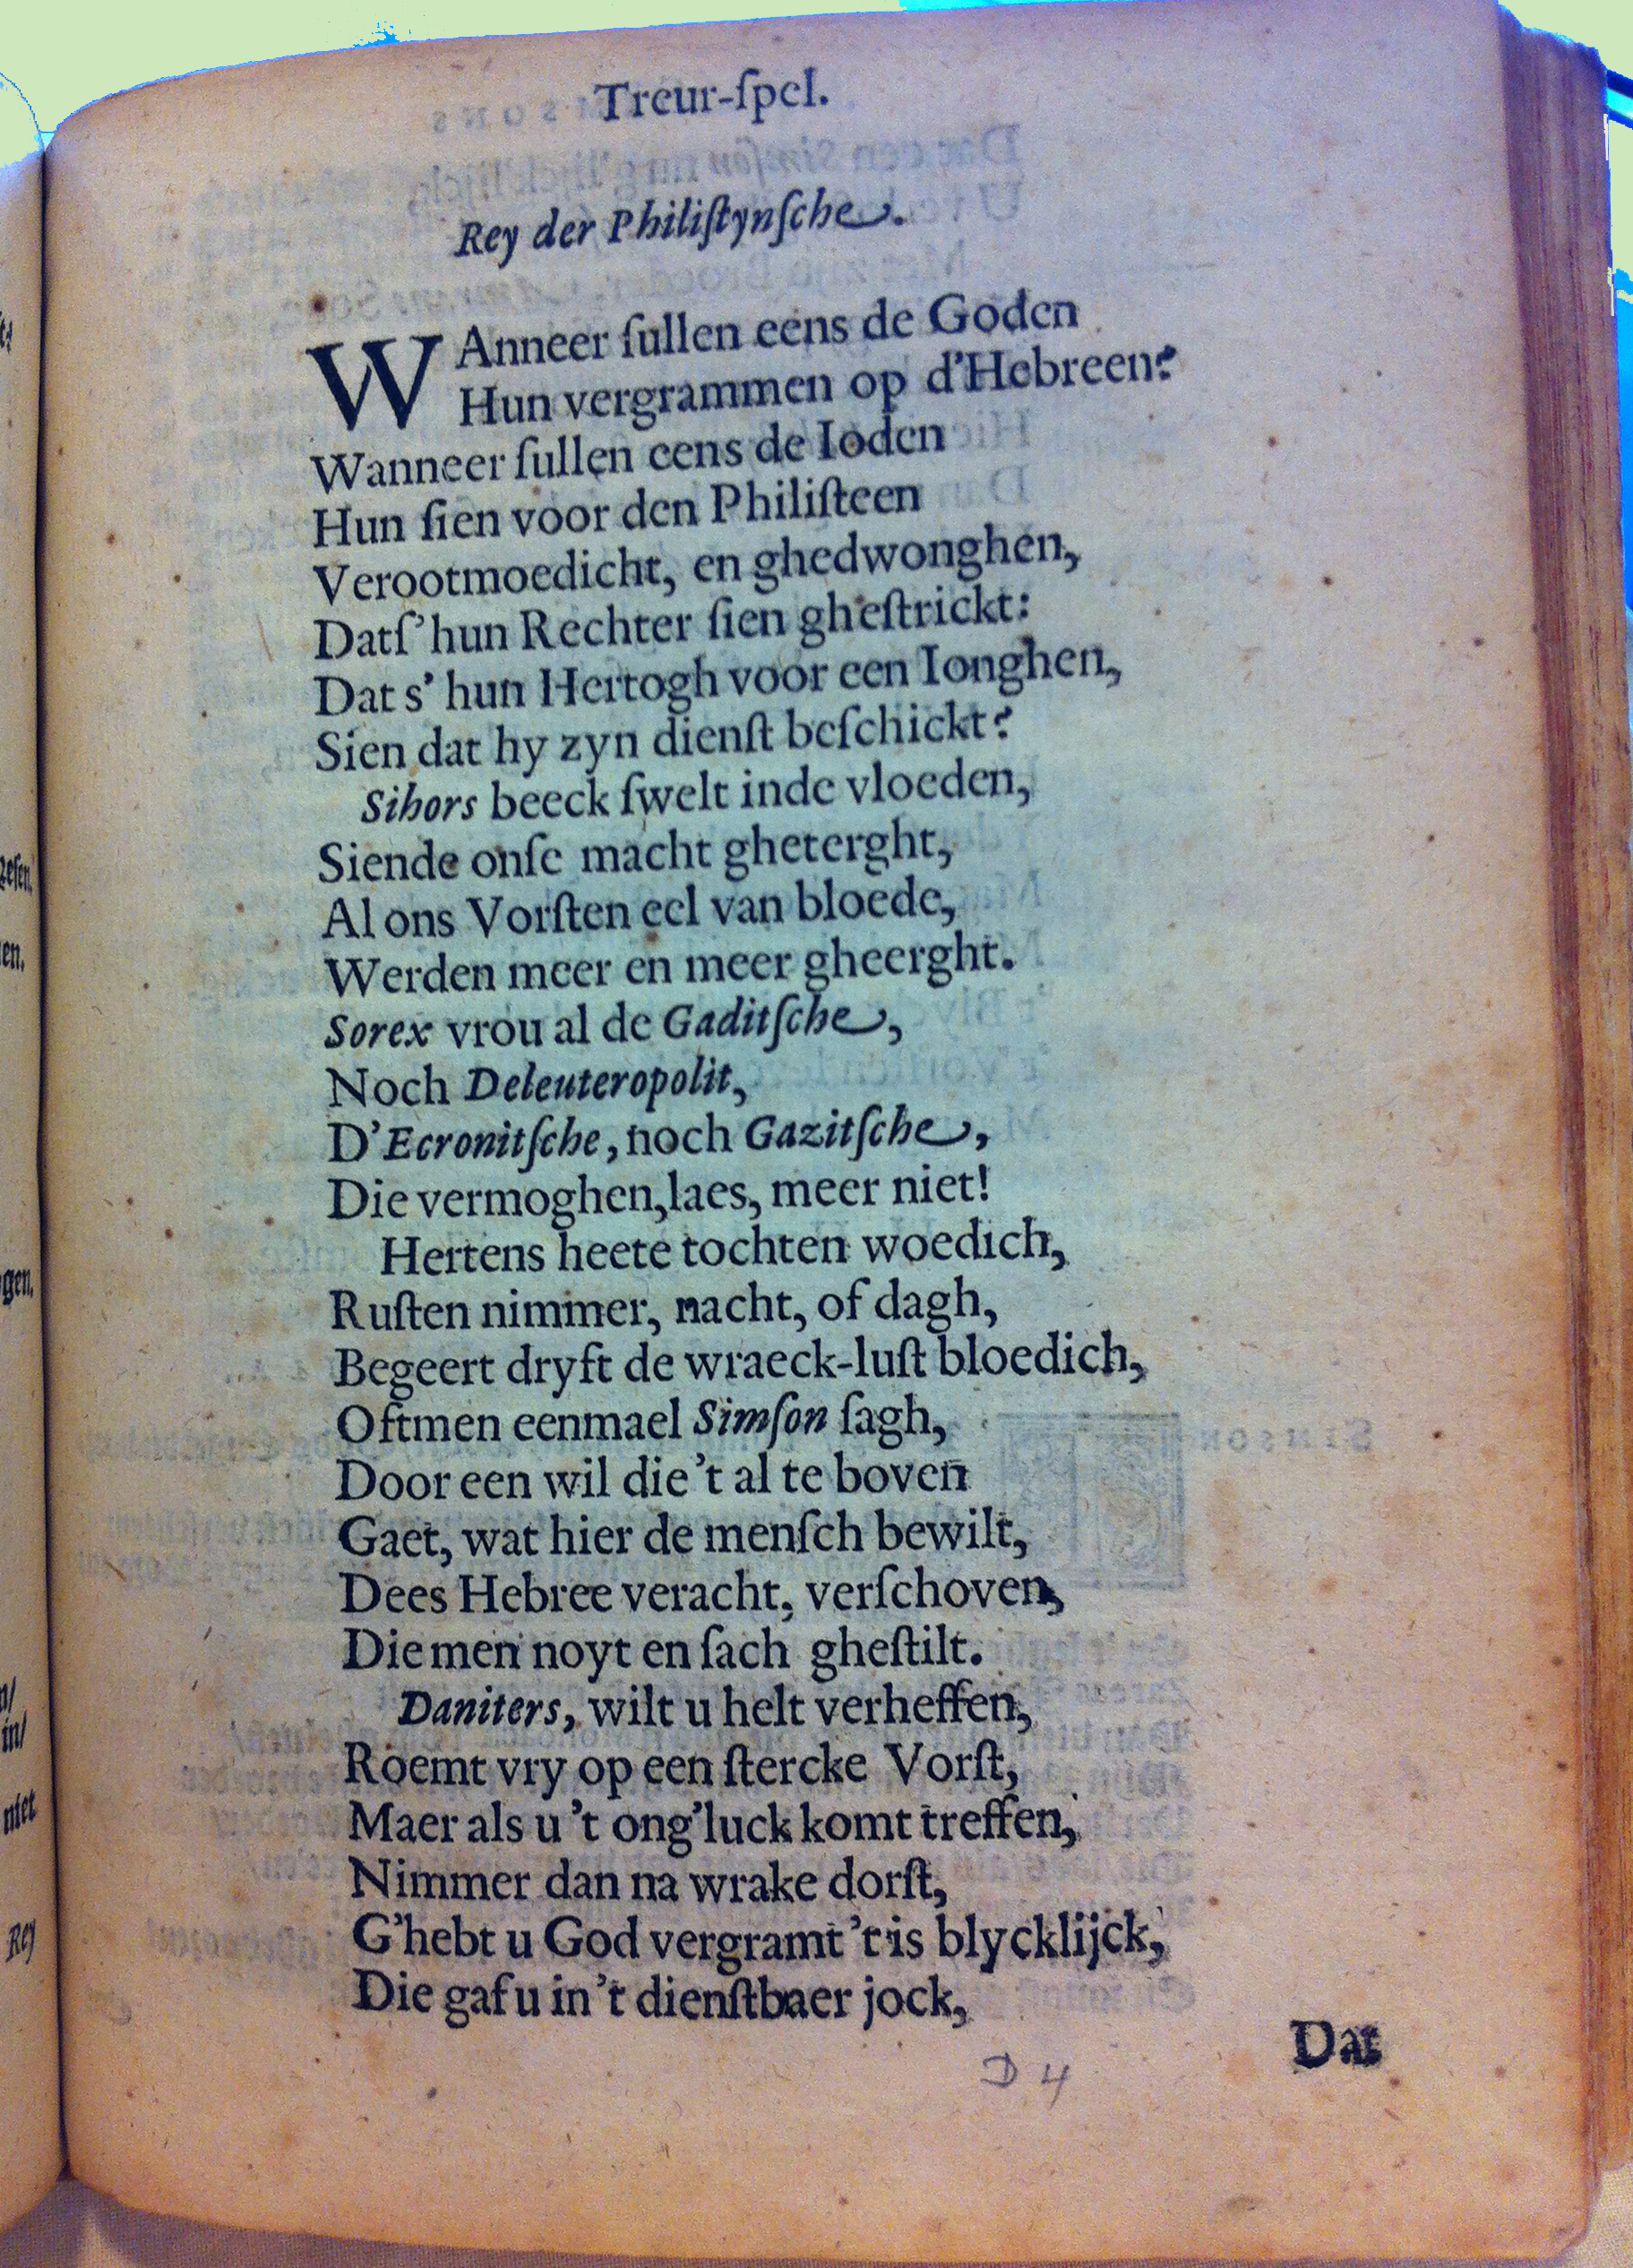 Treur-ſpel.
Rey der Philiſtynſche.
WAnneer ſullen eens de Goden
Hun vergrammen op d'Hebreen?
Wanneer ſullen eens de Ioden
Hun ſien voor den Philiſteen
Verootmoedicht, en ghedwonghen,
Datſ'hun Rechter ſien gheſtrickt:
Dat s' hun Hertogh voor een Ionghen,
Sien dat hy zyn dienſt beſchickt?
Sihors beeck ſwelt inde vloeden,
Siende onſe macht gheterght,
Al ons Vorſten eel van bloede,
Werden meer en meer gheerght.
Sorex vrou al de Gaditſche,
Noch Deleuteropolit,
D'Ecronitſche, noch Gazitſche,
Die vermoghen, laes, meer niet!
Hertens heete tochten woedich,
Ruſten nimmer, nacht, of dagh,
Begeert dryft de wraeck-luſt bloedich,
Oftmen eenmael Simſon ſagh,
Door een wil die 't al te boven
Gaet, wat hier de menſch bewilt,
Dees Hebree veracht, verſchoven,
Die men noyt en ſach gheſtilt.
Daniters, wilt u helt verheffen,
Roemt vry op een ſtercke Vorſt,
Maer als u 't ong'luck komt treffen,
Nimmer dan na wrake dorſt,
G'hebt u God vergramt 't is blycklijck,
Die gaf u in 't dienſtbaer jock,
Dat
D 4
gen.
niet
Rey